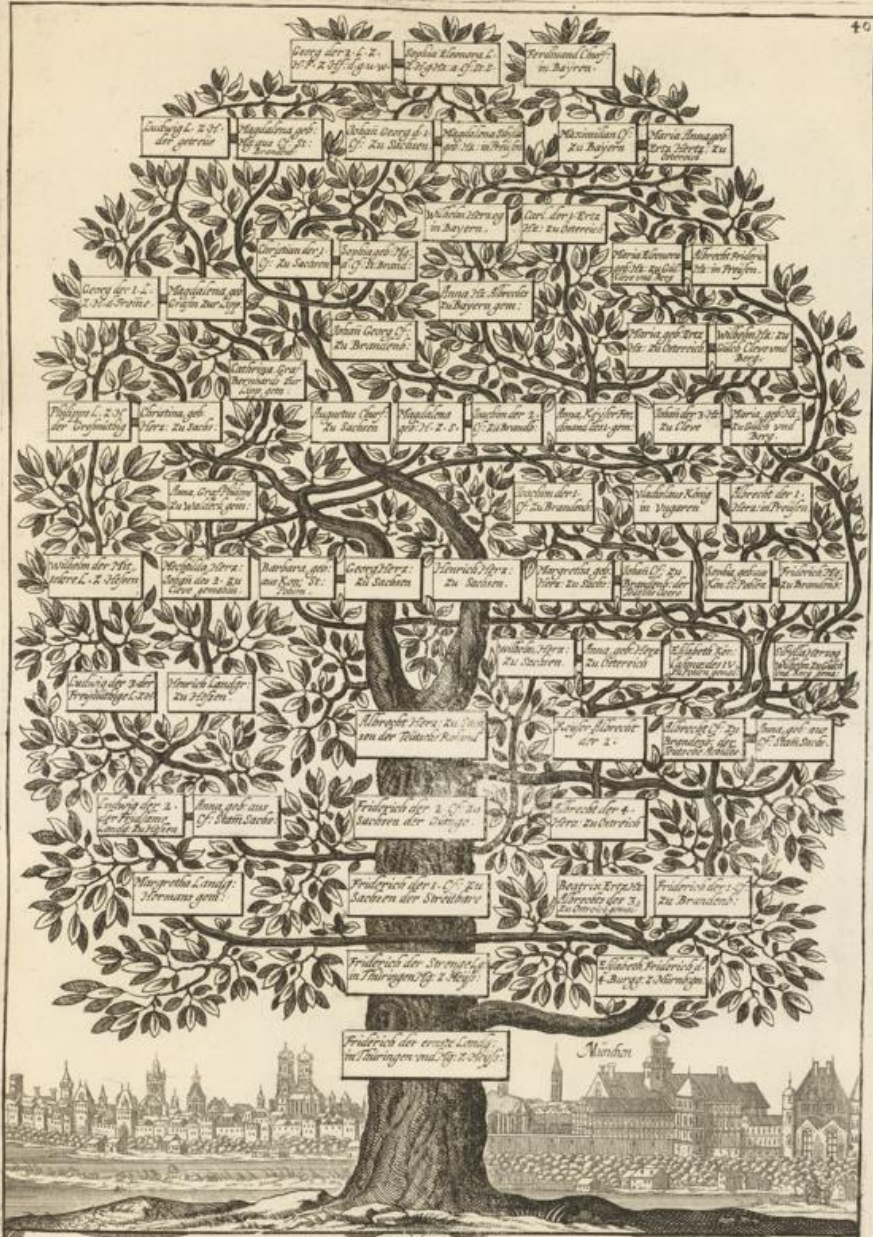 40
Georg der 2. L. Z.
Sophia Eleonora L.
Ferdinand Churf:
in Bayren.
Ludwig L. Z. H.
der getreue
Magdalena geb:
Mg. aus Cf. St:
Brandenb:
Johan Georg d. 1.
Cf: zu Sachsen.
Magdalena Sibilla
geb. Hz: in Preußen
Maximilian Cf:
zu Bayern
Maria Anna geb
Ertz Hertz: zu
Ostereich
Wilhelm Herzog
in Bayern.
Carl der 1. Ertz
Hz: zu Ostereich
Christian der 1.
Cf: zu Sachsen
Sophia geb: Mg.
a. Cf. St: Brand:
Maria Eleonora
geb: Hz: zu Gülch
Cleve und Berg
Albrecht Friderich
Hz: in Preußen.
Georg der 1. L.
Z. H. d. Frome.
Magdalena geb
Gräfin zur Lipp.
Anna Hz: Albrechts
zu Bayern gem:
Johan Georg Cf.
zu Brandenb:
Maria geb: Ertz
Hz: zu Ostereich
Wilhelm Hz: zu
Gülch Cleve und
Berg.
Cathrina Graf
Bernhards zur
Lipp. gem:
Philipps L. Z. H.
der Großmütig
Christina, geb:
Herz: zu Sachs:
Augustus Churf:
zu Sachsen
Magdalena
geb: H. Z. S.
Joachim der 2.
Cf: zu Brandb:
Anna, Keyser Fer,
dinand des 1. gem:
Johan der 3. Hz:
zu Cleve
Maria, geb: Hz:
zu Gülch und
Berg.
Anna, Graf Philipps
zu Waldeck gem:
Joachim der 1.
Cf: zu Brandenb:
Vladislaus König
in Vngaren
Albrecht der 1.
Herz: in Preußen
Wilhelm der Mit,
telere L. Z. Heßen
Mechtildis, Herz:
Johan des 2. zu
Cleve gemahlin.
Barbara, geb:
aus Kön: St:
Polen.
Georg Herz:
zu Sachsen
Henrich Herz:
zu Sachsen.
Margretha, geb:
Herz: zu Sachs:
Johan Cf: zu
Brandenb: der
Teutsche Cicero
Sophia, geb: aus
Kön: St: Polen
Friderich Mg:
zu Brandenb:
Wilhelm, Herz:
zu Sachsen
Anna, geb: Herz:
zu Ostereich
Elisabeth Kön:
Casimir: des IV.
zu Polen gemal
Sibylla Herzog
Wilhelm zu Gülch
und Berg gema:
Ludwig der 3. der
Freymütige L. Z. H.
Henrich Landgr:
zu Heßen.
Albrecht Herz: zu Sach
sen der Teutsche Roland
Keyser Albrecht
der 2.
Albrecht Cf: zu
Brandenb: der
Teutsche Achilles
Anna, geb: aus
Cf: Stam Sachs:
Ludwig der 2.
der Fridsame
Landg: zu Heßen
Anna, geb: aus
Cf: Stam Sachs:
Friderich der 2. Cf: zu
Sachsen der Gütige.
Albrecht der 4.
Herz: zu Ostreich
Margretha Landg:
Hermans gem:
Friderich der 1. Cf: zu
Sachsen der Streitbare
Beatrix Ertz Hz:
Albrechts des 3.
zu Ostreich gemal:
Friderich der 1. Cf.
zu Brandenb:
Friderich der Strenge Lg:
in Thüringen Mg: Z. Meyß:
Elisabeth Friderich d.
4. Burgg: Z. Nürnbgen
Friderich der ernste Landg:
in Thüringen und Mg: Z. Meyßs:
München